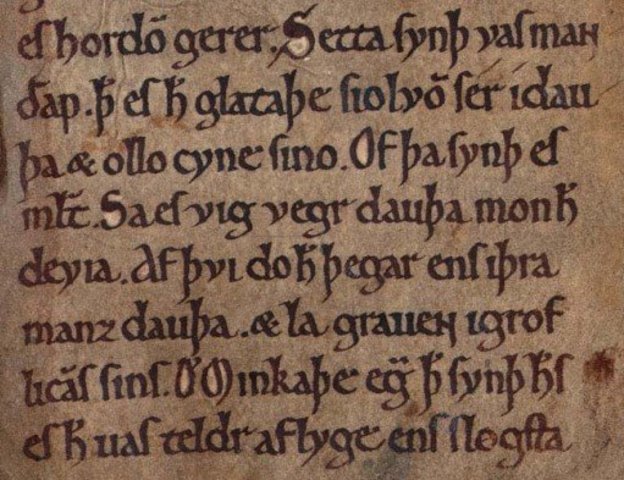 es hordō gerer. Setta synþ vas man
dꝛap. þ̄ es h̄ glataþe siolvō sér i dau
þa & ollo cyne sino. Of þa synþ es
mł̄t. Sa es vig vegr dauþa mon h̄
deyia. Af þvi do h̄ þegar ens iþra
manz dauþa. & la grauen i grof
licās sins. Minkaþe eḡ þ̄ synþ h̄s
es h̄ uas teldr af lyge ens sløgsta